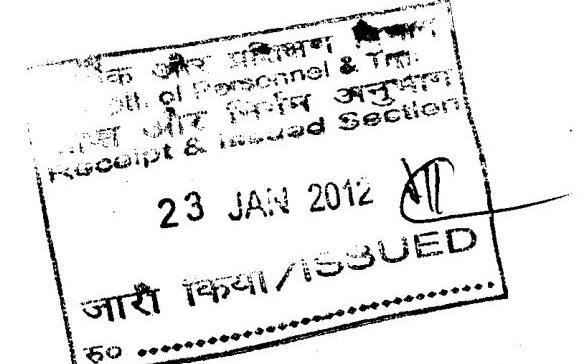 और प्रशिक्षण विभाग
of Personnel &
और निर्गम अनुभाग
Receipt & Issued Section
23 JAN 2012
जारी किया/ISSUED
रु०